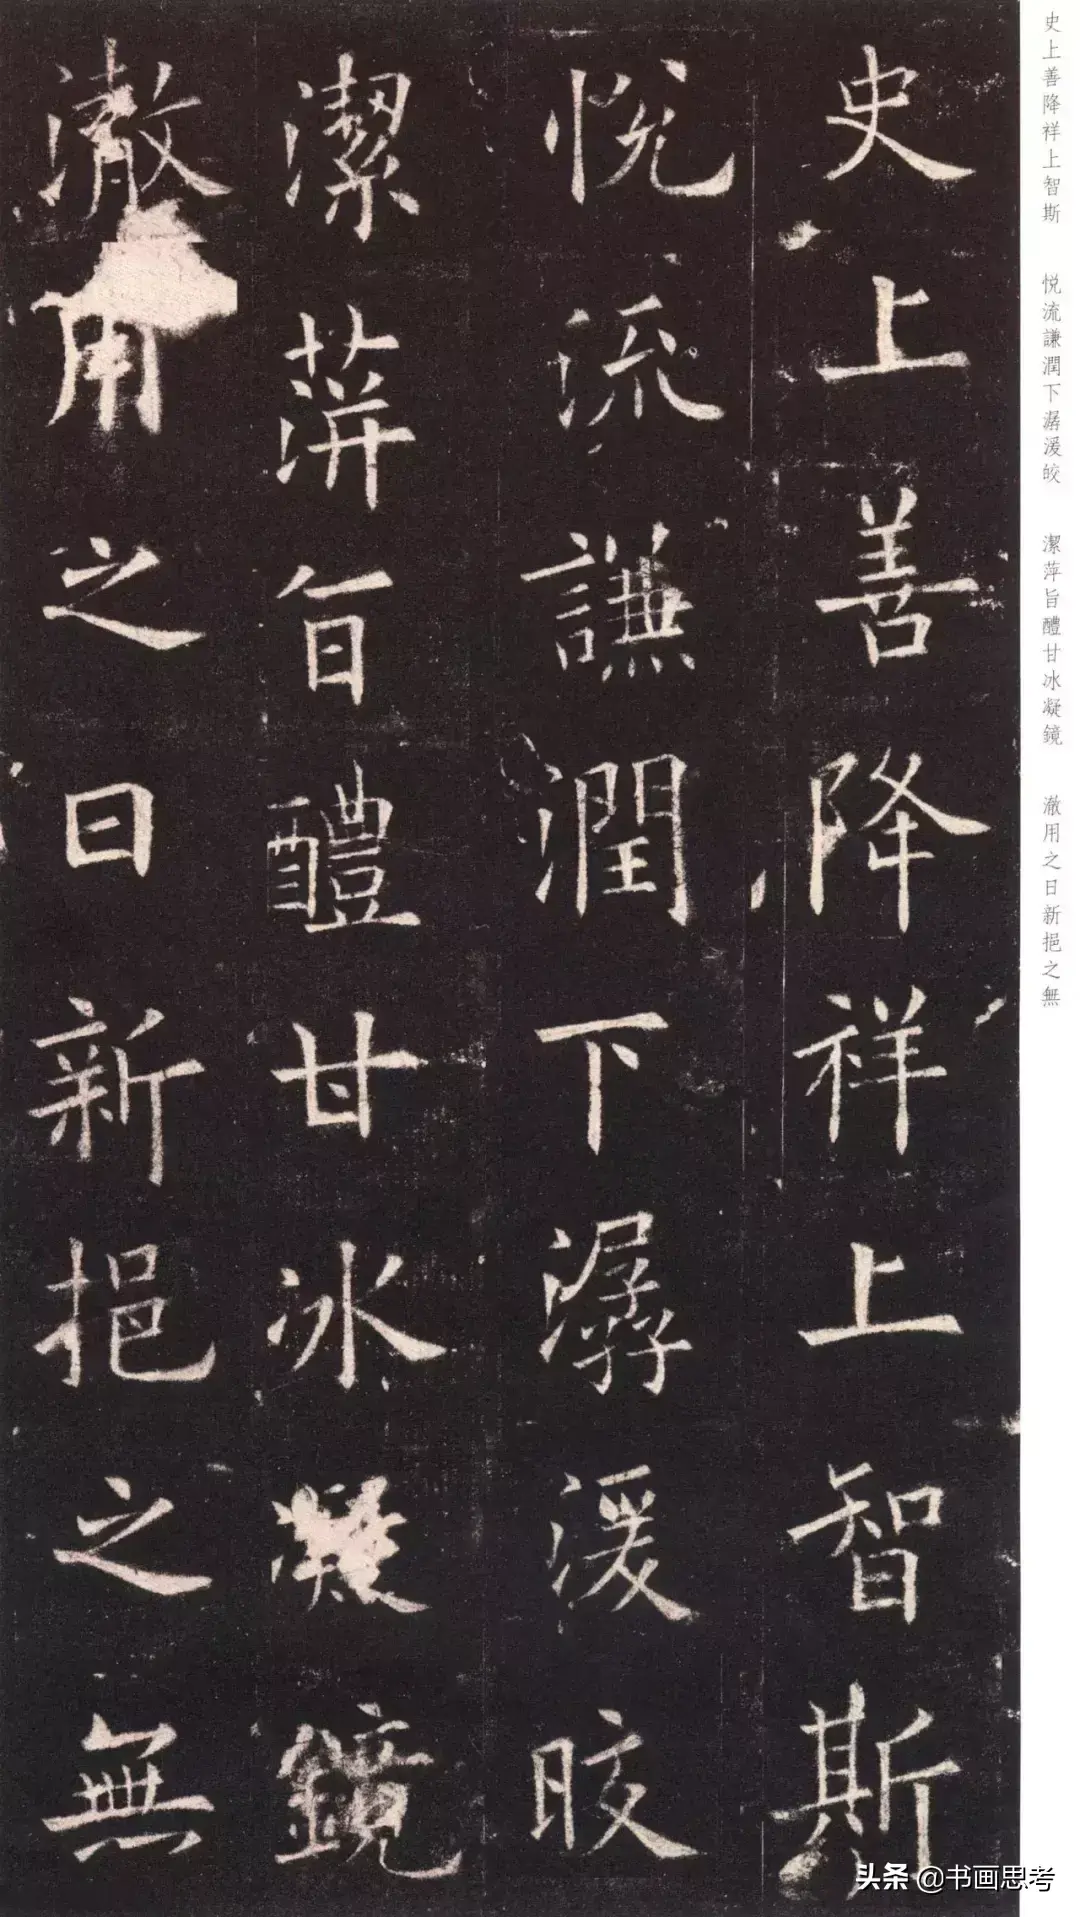 史上善降祥上智斯
悦流謙潤下潺湲皎
潔萍旨醴甘冰凝鏡
澈用之日新挹之無
史上善降祥上智斯 悦流謙潤下潺湲皎 潔萍旨醴甘冰凝鏡 澈用之日新挹之無
头条 @书画思考